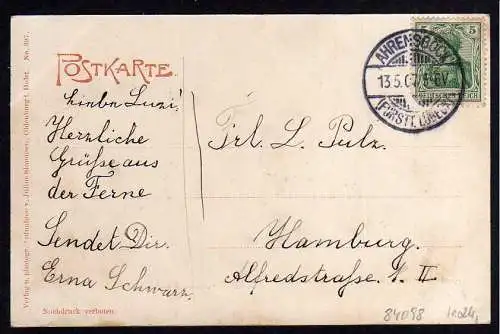 POSTKARTE.
Liebe Luzi!
Herzliche
Grüße aus
der Ferne
Sendet Dir.
Erna Schwarz.
Frl. L. Pulz.
Hamburg.
Alfredstraße 1. II
AHRENSBÖCK
13.5.0
(FÜRSTT. LÜBECK)
5 5
DEUTSCHES REICH
Verlag u. photogr. Aufnahme v. Julius Simonsen, Oldenburg i. Holst. No. 307.
Nachdruck verboten.
84098